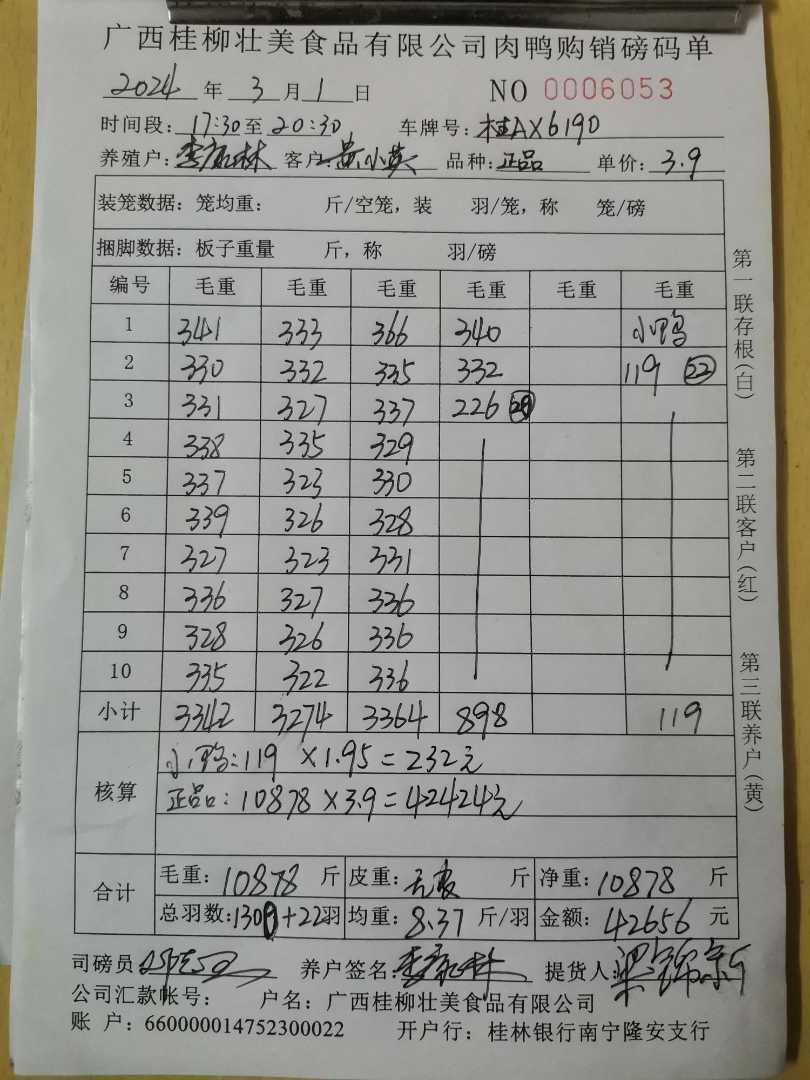 广西桂柳壮美食品有限公司肉鸭购销磅码单
2024 年 3 月 1 日 NO 0006053
时间段: 17:30 至 20:30 车牌号: 桂AX6190
养殖户: 李家林 客户: 黄小英 品种: 正品 单价: 3.9
装笼数据: 笼均重: 斤/空笼, 装 羽/笼, 称 笼/磅
捆脚数据: 板子重量 斤, 称 羽/磅
编号 毛重 毛重 毛重 毛重 毛重 毛重
1 341 333 366 340 小鸭
2 330 332 335 332 119 22
3 331 327 337 226
4 338 335 329
5 337 323 330
6 339 326 328
7 327 323 331
8 336 327 336
9 328 326 336
10 335 322 336
小计 3342 3274 3364 898 119
核算 小鸭: 119 ×1.95 = 232元
正品: 10878 ×3.9 = 42424元
合计 毛重: 10878 斤 皮重: 斤 净重: 10878 斤
总羽数: +22羽 均重: 8.37 斤/羽 金额: 42656 元
司磅员: 养户签名: 李家林 提货人: 梁锦新
公司汇款帐号: 户名: 广西桂柳壮美食品有限公司
账 户: 660000014752300022 开户行: 桂林银行南宁隆安支行
第一联存根(白) 第二联客户(红) 第三联养户(黄)